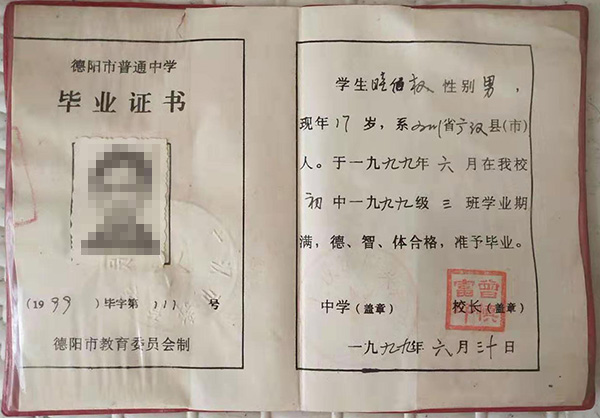 德阳市普通中学
毕业证书
(1999)毕字第111号
德阳市教育委员会制
学生 性别男，
现年17岁，系四川省广汉县(市)
人。于一九九九年六月在我校
初中一九九九级三班学业期
满，德、智、体合格，准予毕业。
中学(盖章) 校长(盖章)
一九九九年六月三十日